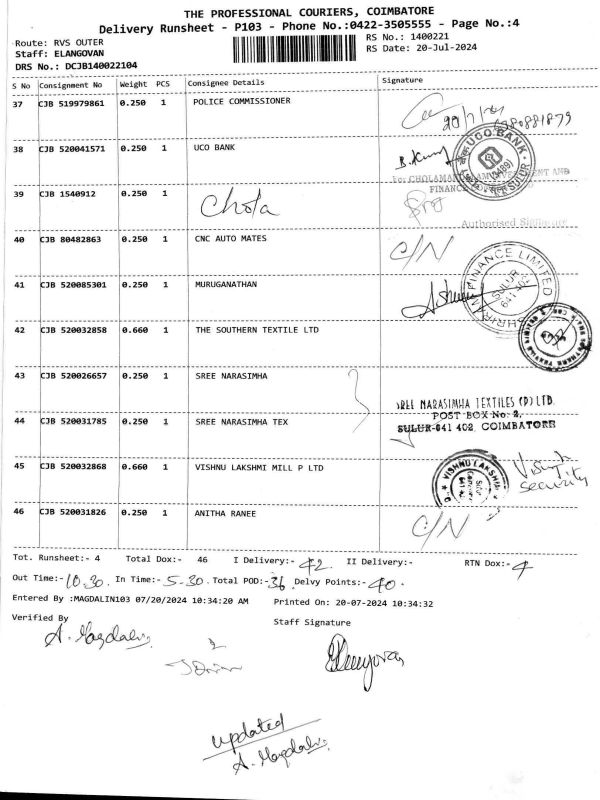 THE PROFESSIONAL COURIERS, COIMBATORE
Delivery Runsheet - P103 - Phone No.:0422-3505555 - Page No.:4
Route: RVS OUTER
RS No.: 1400221
Staff: ELANGOVAN
RS Date: 20-Jul-2024
DRS No.: DCJB140022104
S No Consignment No Weight PCS Consignee Details Signature
37 CJB 519979861 0.250 1 POLICE COMMISSIONER
38 CJB 520041571 0.250 1 UCO BANK
UCO BANK
SULUR
39 CJB 1540912 0.250 1 Chola
Authorised Signature
40 CJB 80482863 0.250 1 CNC AUTO MATES C/N
41 CJB 520085301 0.250 1 MURUGANATHAN
FINANCE LIMITED
SULUR
641 402
42 CJB 520032858 0.660 1 THE SOUTHERN TEXTILE LTD
43 CJB 520026657 0.250 1 SREE NARASIMHA
SREE NARASIMHA TEXTILES (P) LTD.
POST BOX No: 2,
44 CJB 520031785 0.250 1 SREE NARASIMHA TEX
SULUR-641 402, COIMBATORE
45 CJB 520032868 0.660 1 VISHNU LAKSHMI MILL P LTD
VISHNU LAKSHMI
security
46 CJB 520031826 0.250 1 ANITHA RANEE C/N
Tot. Runsheet:- 4 Total Dox:- 46 I Delivery:- 42 II Delivery:- RTN Dox:- 4
Out Time:- 10.30. In Time:- 5-30. Total POD:- 36 Delvy Points:- 40.
Entered By :MAGDALIN103 07/20/2024 10:34:20 AM Printed On: 20-07-2024 10:34:32
Verified By
Staff Signature
A. Magdalin
updated
A. Magdalin